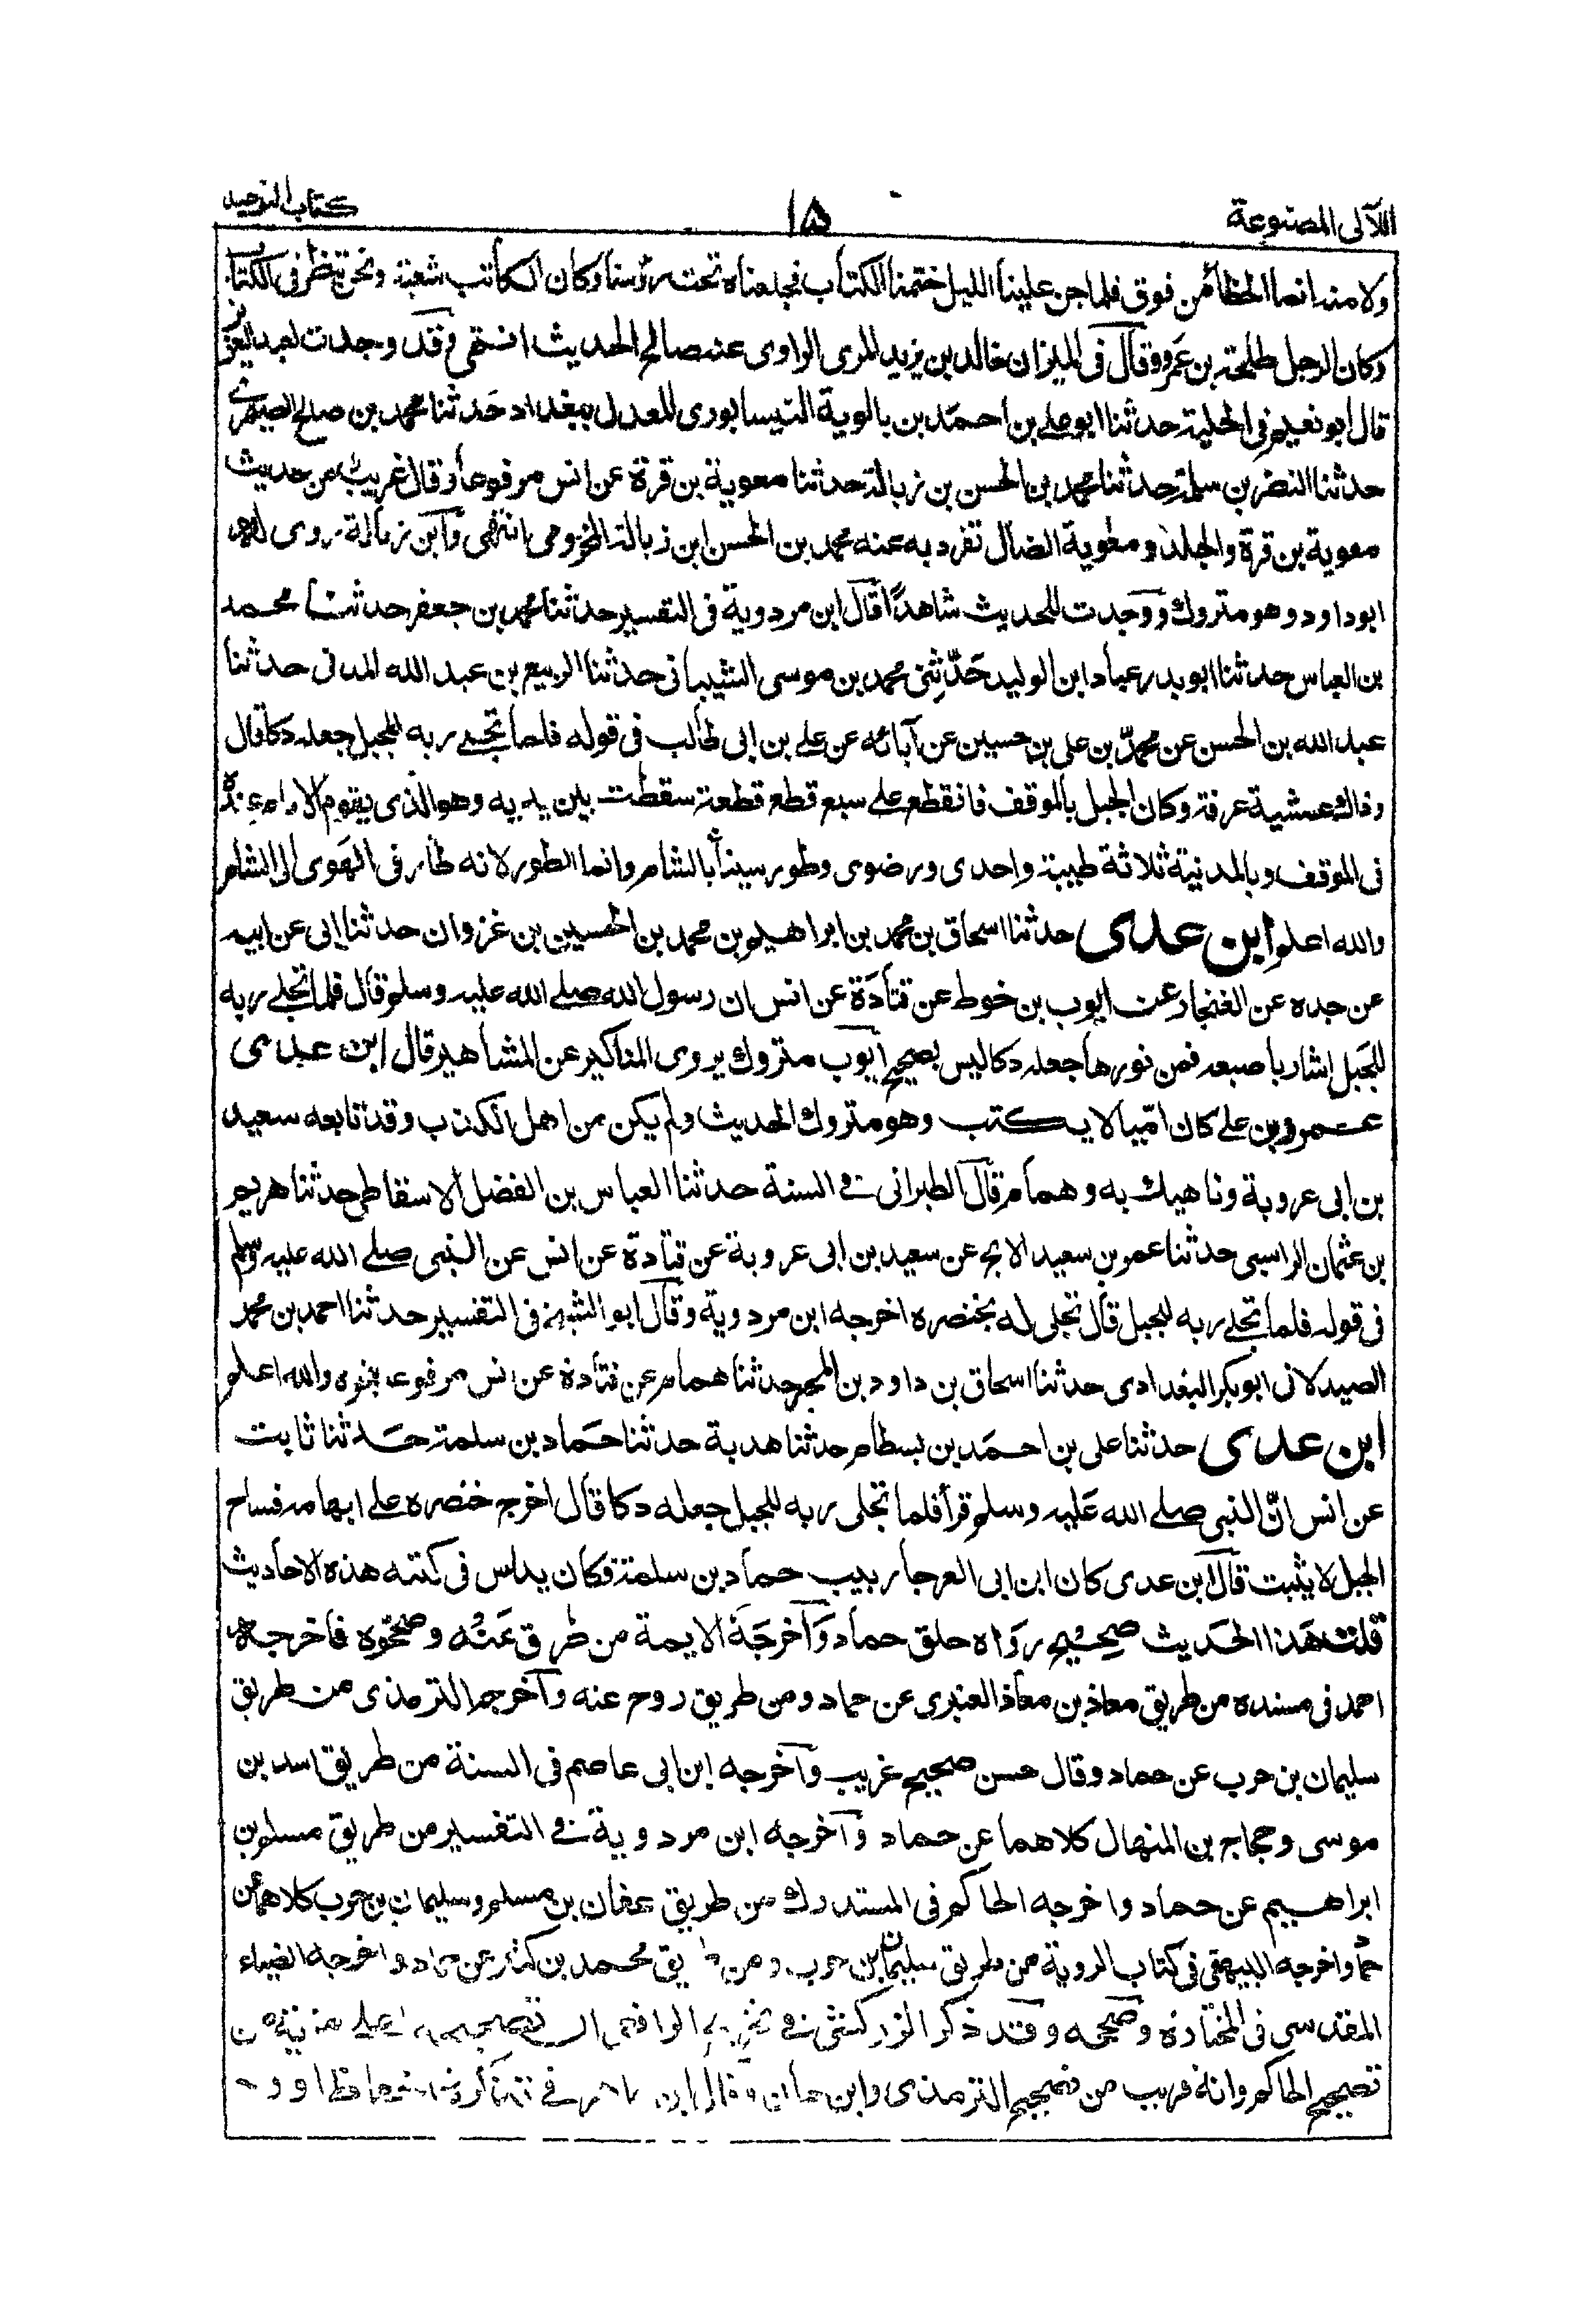 اللآلى المصنوعة
۱۵
كتاب التوحيد
ولا منه انما الخطأ من فوق فلما جن علينا الليل ختمنا الكتاب فجعلناه تحت رؤسنا وكان الكاتب شعبة ونحن ننظر فى الكتاب
وكان الرجل طلحة بن عمرو وقال فى الميزان خالد بن يزيد المرى الراوى عنه صالح الحديث انتهى وقد وجدت لعبد العزيز
قال ابو نعيم فى الحلية حدثنا ابو على بن احمد بن بالوية النيسابورى المعدل ببغداد حدثنا محمد بن صالح الصيمرى
حدثنا النضر بن سلمة حدثنا محمد بن الحسن بن زبالة حدثنا معوية بن قرة عن انس مرفوعا وقال غريب من حديث
معوية بن قرة والجلد ومعوية الضال تفرد به عنه محمد بن الحسن ابن زبالة المخزومى انتهى وابن زبالة روى له
ابو داود وهو متروك ووجدت للحديث شاهدا قال ابن مردوية فى التفسير حدثنا محمد بن جعفر حدثنا محمد
بن العباس حدثنا ابو بدر عباد ابن الوليد حدثنى محمد بن موسى الشيبانى حدثنا الربيع بن عبد الله المدنى حدثنا
عبد الله بن الحسن عن محمد بن على بن حسين عن آبائه عن على بن ابى طالب فى قوله فلما تجلى ربه للجبل جعله دكا قال
وذلك عشية عرفة وكان الجبل بالموقف فانقطع على سبع قطع قطعة سقطت بين يديه وهو الذى يقوم الامام عنده
فى الموقف وبالمدنية ثلاثة طيبة واحدى ورضوى وطور سيناء بالشام وانما الطور لانه طار فى الهوى الى الشام
والله اعلم ابن عدى حدثنا اسحاق بن محمد بن ابراهيم بن محمد بن الحسين بن غزوان حدثنا ابى عن ابيه
عن جده عن الغنجار عن ايوب بن خوط عن قتادة عن انس ان رسول الله صلى الله عليه وسلم قال فلما تجلى ربه
للجبل اشار باصبعه فمن نورها جعله دكا ليس بصحيح ايوب متروك يروى المناكير عن المشاهير قال ابن عدى
عمرو بن على كان اميا لا يكتب وهو متروك الحديث ولم يكن من اهل الكذب وقد تابعه سعيد
بن ابى عروبة وناهيك به وهمام قال الطبرانى فى السنة حدثنا العباس بن الفضل الاسقاطى حدثنا هريم
بن عثمان الراسبى حدثنا عمر بن سعيد الابح عن سعيد بن ابى عروبة عن قتادة عن انس عن النبى صلى الله عليه وسلم
فى قوله فلما تجلى ربه للجبل قال تجلى له بخنصره اخرجه ابن مردوية وقال ابو الشيخ فى التفسير حدثنا احمد بن محمد
الصيدلانى ابو بكر البغدادى حدثنا اسحاق بن داود بن المحبر حدثنا همام عن قتادة عن انس مرفوعا بنحوه والله اعلم
ابن عدى حدثنا على بن احمد بن بسطام حدثنا هدبة حدثنا حماد بن سلمة حدثنا ثابت
عن انس ان النبى صلى الله عليه وسلم قرأ فلما تجلى ربه للجبل جعله دكا قال اخرج خنصره على ابهامه فساح
الجبل لا يثبت قال ابن عدى كان ابن ابى العرجا ربيب حماد بن سلمة فكان يدلس فى كتبه هذه الاحاديث
قلت هذا الحديث صحيح رواه خلق حماد وأخرجه الايمة من طرق عنه وصححوه فاخرجه
احمد فى مسنده من طريق معاذ بن معاذ العنبرى عن حماد ومن طريق روح عنه وأخرجه الترمذى من طريق
سليمان بن حرب عن حماد وقال حسن صحيح غريب وأخرجه ابن ابى عاصم فى السنة من طريق اسد بن
موسى وحجاج بن المنهال كلاهما عن حماد وأخرجه ابن مردوية فى التفسير من طريق مسلم بن
ابراهيم عن حماد واخرجه الحاكم فى المستدرك من طريق عفان بن مسلم وسليمان بن حرب كلاهما عن
حماد واخرجه البيهقى فى كتاب الروية من طريق سليمان بن حرب ومن طريق محمد بن كثير عن حماد واخرجه الضياء
المقدسى فى المختارة وصححه وقد ذكر الزركشى فى تخريج الرافعى ان تصحيحه اعلى مزية من
تصحيح الحاكم وانه قريب من تصحيح الترمذى وابن حبان وقال ابن طاهر فى تذكرة الحفاظ